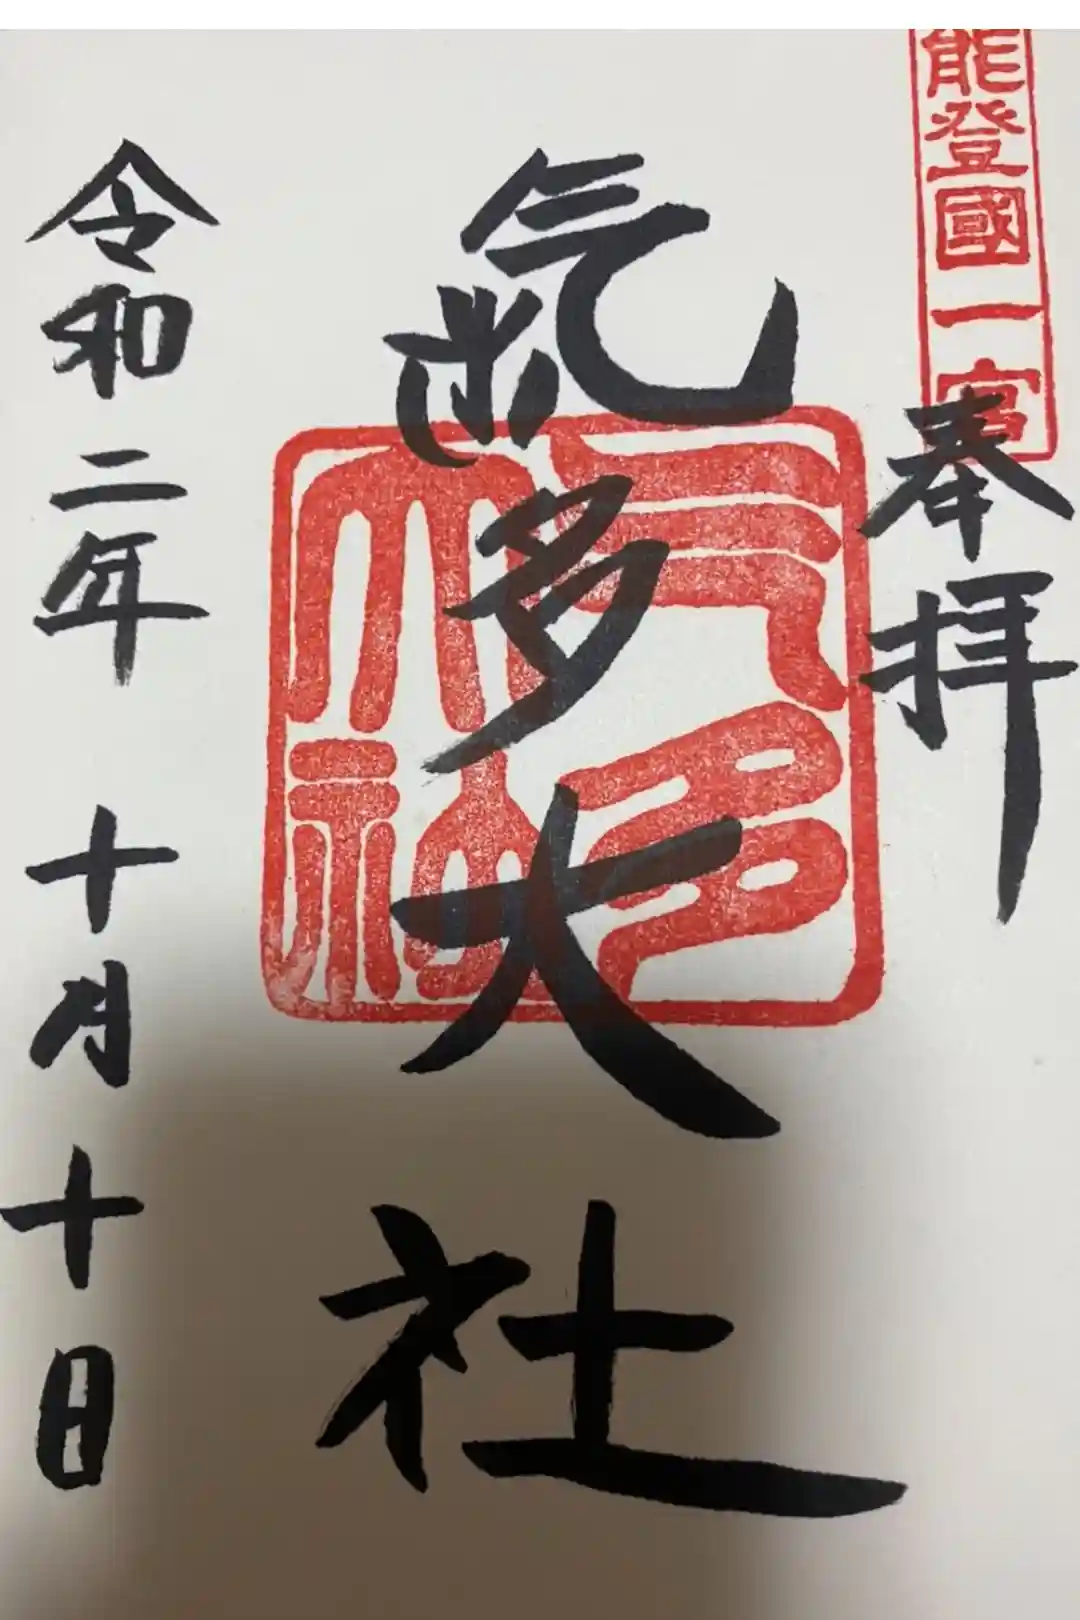 能登國一宮
奉拝
氣多大社
気多大社
令和二年 十月十日